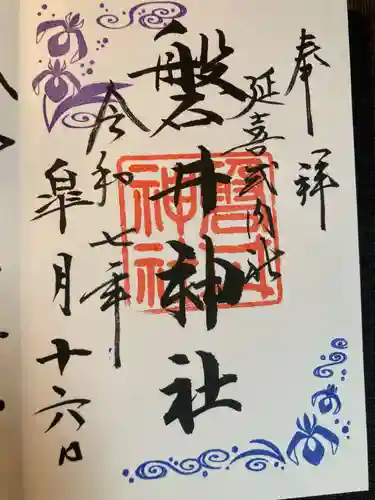 奉拝
延喜式内社
磐井神社
令和七年
皐月十六日
磐井
神社